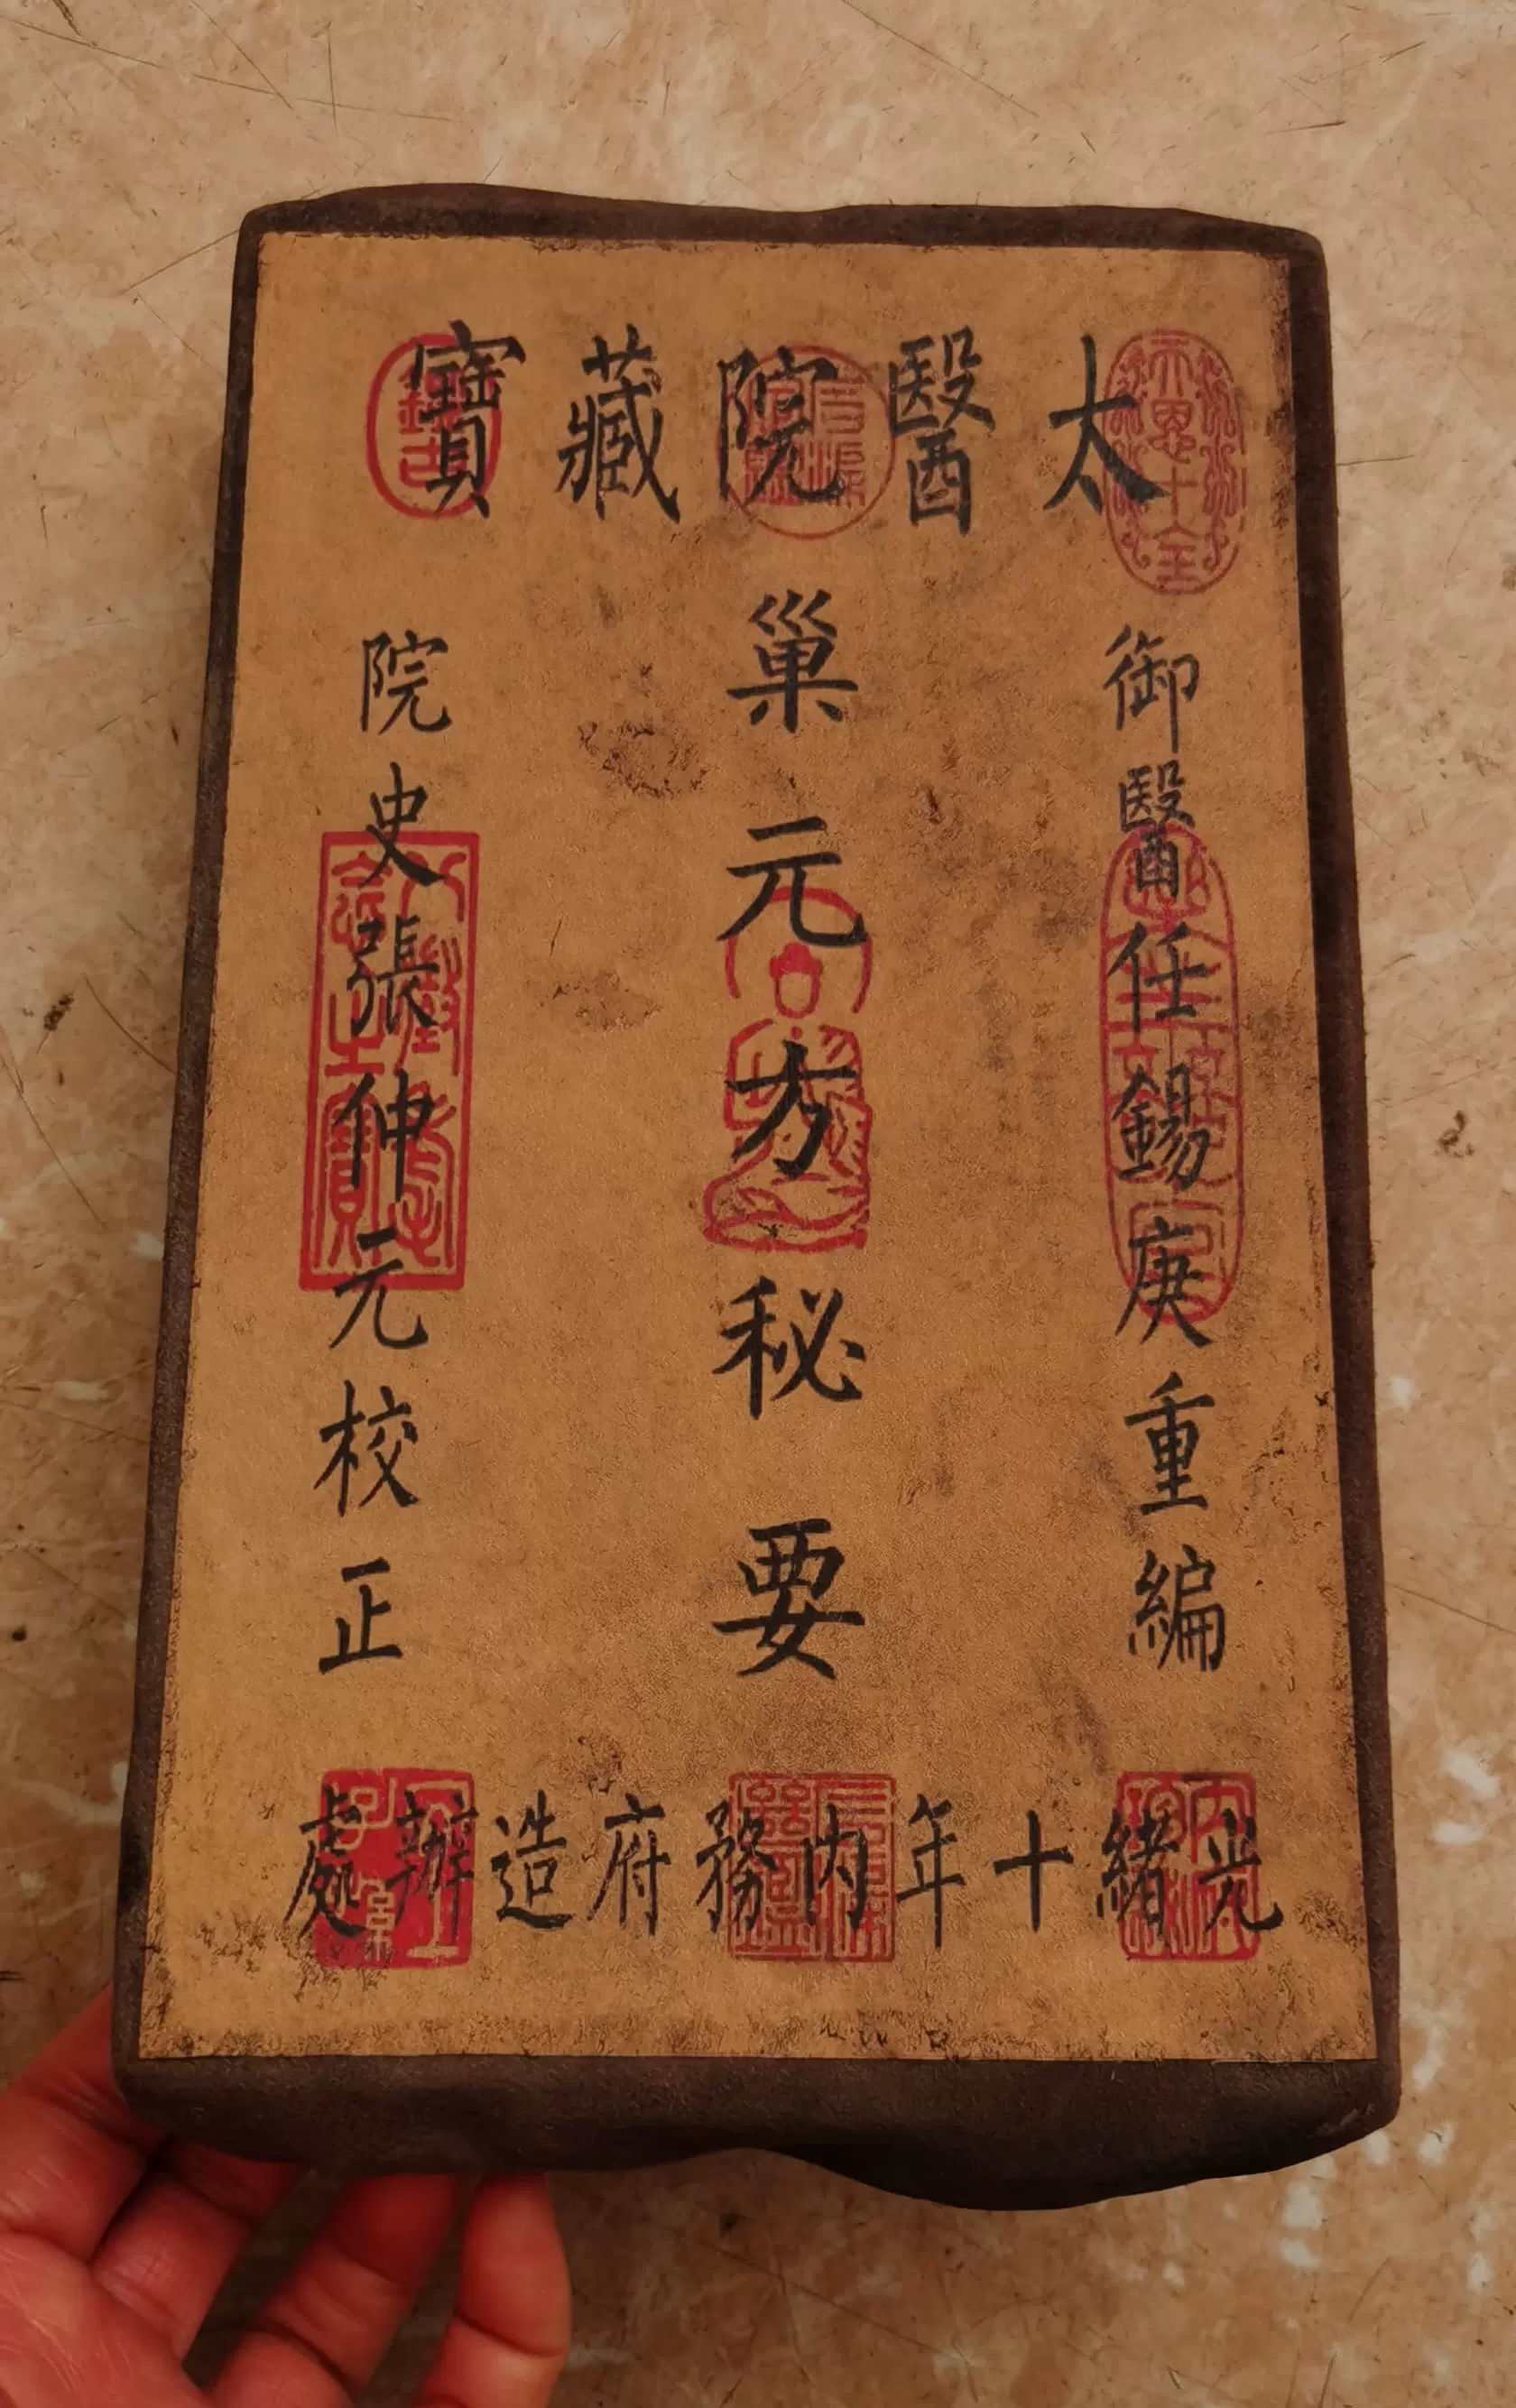 太醫院藏寶
御醫任錫庚重編
巢元方秘要
院史張仲元校正
光緒十年內務府造辦處